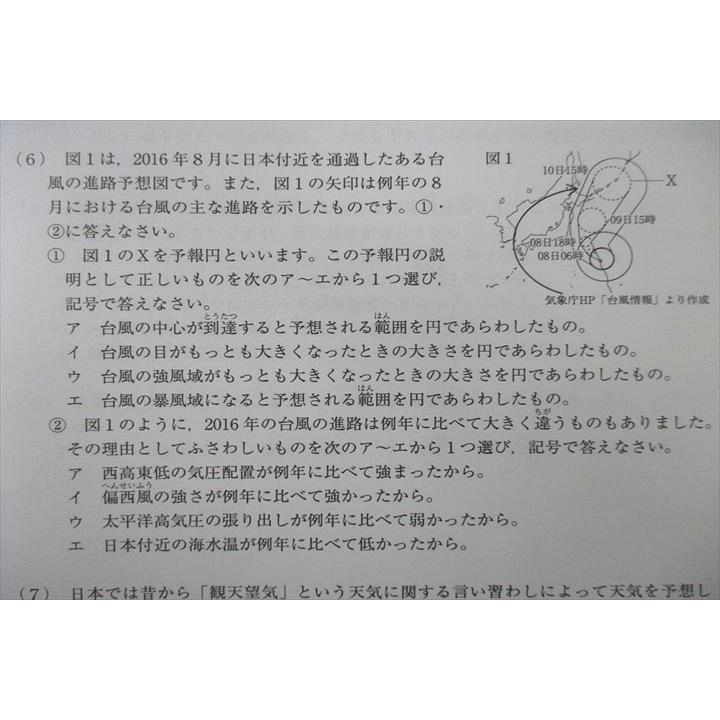 (6) 図1は，2016年8月に日本付近を通過したある台
風の進路予想図です。また，図1の矢印は例年の8
月における台風の主な進路を示したものです。①・
②に答えなさい。
① 図1のXを予報円といいます。この予報円の説
明として正しいものを次のア～エから1つ選び，
記号で答えなさい。
図1
10日15時
X
09日15時
08日18時
08日06時
気象庁HP「台風情報」より作成
とうたつ はん
ア 台風の中心が到達すると予想される範囲を円であらわしたもの。
イ 台風の目がもっとも大きくなったときの大きさを円であらわしたもの。
ウ 台風の強風域がもっとも大きくなったときの大きさを円であらわしたもの。
はん
エ 台風の暴風域になると予想される範囲を円であらわしたもの。
ちが
② 図1のように，2016年の台風の進路は例年に比べて大きく違うものもありました。
その理由としてふさわしいものを次のア～エから1つ選び，記号で答えなさい。
ア 西高東低の気圧配置が例年に比べて強まったから。
へんせいふう
イ 偏西風の強さが例年に比べて強かったから。
ウ 太平洋高気圧の張り出しが例年に比べて弱かったから。
エ 日本付近の海水温が例年に比べて低かったから。
(7) 日本では昔から「観天望気」という天気に関する言い習わしによって天気を予想し